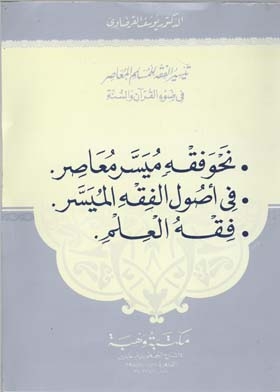 الدكتور يوسف القرضاوى
تيسير الفقه للمسلم المعاصر
فى ضوء القرآن والسنة
• نحو فقه ميسر معاصر.
• فى أصول الفقه الميسر.
• فقه العلم.
مكتبة وهبة